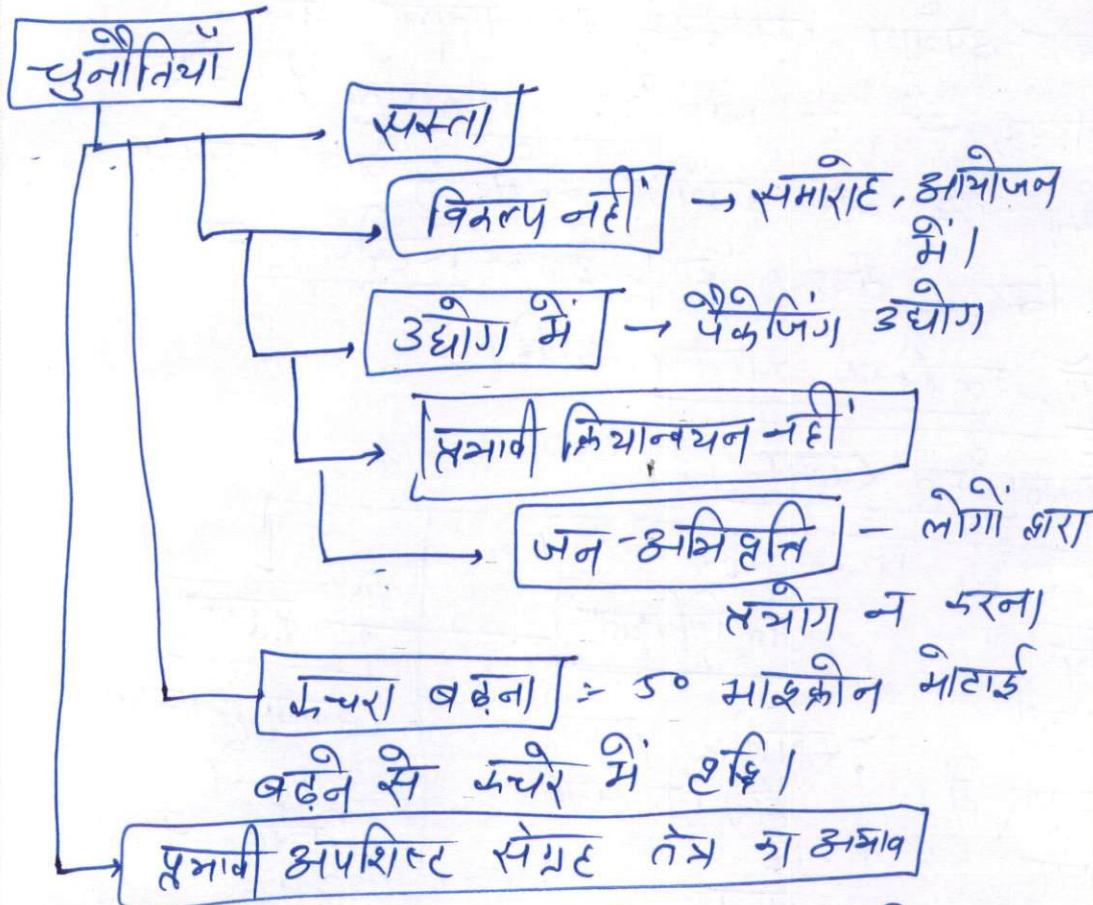 चुनौतियाँ
सस्ता
विकल्प नहीं → समारोह, आयोजन
में।
उद्योग में → पैकेजिंग उद्योग
प्रभावी क्रियान्वयन नहीं
जन-अभिवृत्ति - लोगों द्वारा
प्रयोग न करना
कचरा बढ़ना :- 50 माइक्रोन मोटाई
बढ़ने से कचरे में वृद्धि।
प्रभावी अपशिष्ट संग्रह तंत्र का अभाव